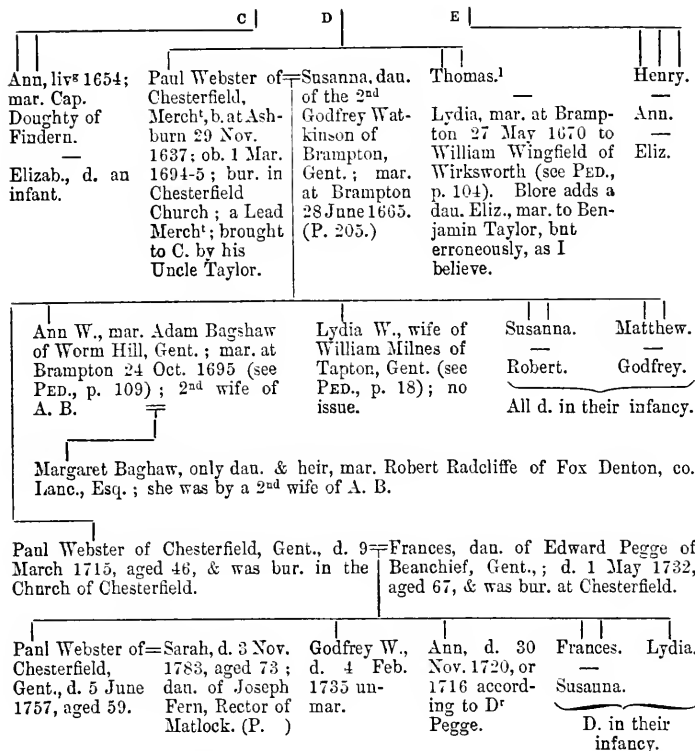 C D E
Ann, livᵍ 1654;
mar. Cap.
Doughty of
Findern.
—
Elizab., d. an
infant.
Paul Webster of=
Chesterfield,
Merchᵗ, b. at Ash-
burn 29 Nov.
1637; ob. 1 Mar.
1694-5; bur. in
Chesterfield
Church; a Lead
Merchᵗ; brought
to C. by his
Uncle Taylor.
Susanna, dau.
of the 2ⁿᵈ
Godfrey Wat-
kinson of
Brampton,
Gent.; mar.
at Brampton
28 June 1665.
(P. 205.)
Thomas.¹
—
Lydia, mar. at Bramp-
ton 27 May 1670 to
William Wingfield of
Wirksworth (see PED.,
p. 104). Blore adds a
dau. Eliz., mar. to Ben-
jamin Taylor, but
erroneously, as I
believe.
Henry.
—
Ann.
—
Eliz.
Ann W., mar. Adam Bagshaw
of Worm Hill, Gent.; mar. at
Brampton 24 Oct. 1695 (see
PED., p. 109); 2ⁿᵈ wife of
A. B.
Lydia W., wife of
William Milnes of
Tapton, Gent. (see
PED., p. 18); no
issue.
Susanna.
—
Robert.
Matthew.
—
Godfrey.
All d. in their infancy.
Margaret Baghaw, only dau. & heir, mar. Robert Radcliffe of Fox Denton, co.
Lanc., Esq.; she was by a 2ⁿᵈ wife of A. B.
Paul Webster of Chesterfield, Gent., d. 9=
March 1715, aged 46, & was bur. in the
Church of Chesterfield.
Frances, dau. of Edward Pegge of
Beauchief, Gent.,; d. 1 May 1732,
aged 67, & was bur. at Chesterfield.
Paul Webster of=
Chesterfield,
Gent., d. 5 June
1757, aged 59.
Sarah, d. 3 Nov.
1783, aged 73;
dau. of Joseph
Fern, Rector of
Matlock. (P. )
Godfrey W.,
d. 4 Feb.
1735 un-
mar.
Ann, d. 30
Nov. 1720, or
1716 accord-
ing to Dʳ
Pegge.
Frances.
—
Susanna.
Lydia.
D. in their
infancy.